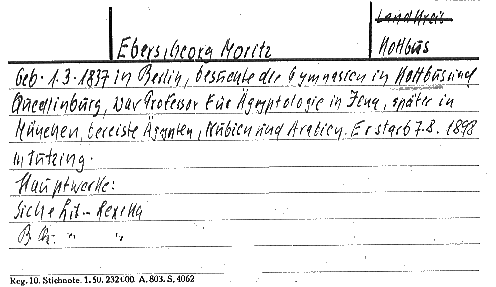 Landkreis
Ebers, Georg Moritz Kottbus
Geb. 1.3.1837 in Berlin, besuchte die Gymnasien in Kottbus und
Quedlinburg, war Professor für Ägyptologie in Jena, später in
München, bereiste Ägypten, Nubien und Arabien. Er starb 7.8.1898
in Tutzing.
Hauptwerke:
Siehe Lit-
B " "
Reg. 10. Stichnote. 1. 50. 232000. A. 803. S. 4062